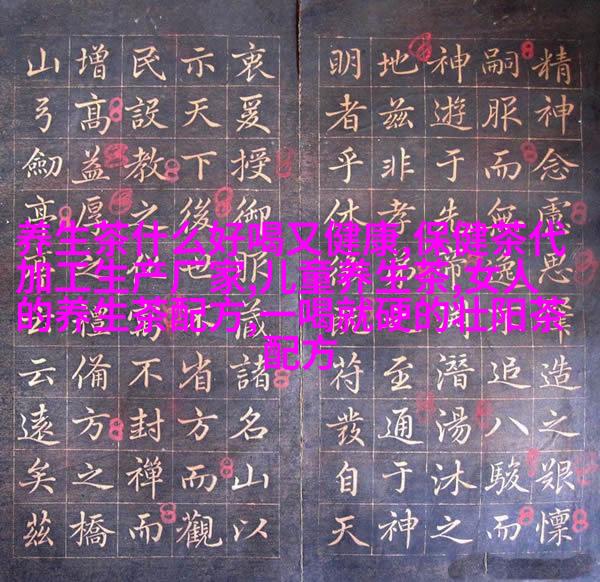 精神念慮思造之艱懍
嗣服而無追八駿而
神遊于先潛湯沐之
地茲非孝至通于神
明者乎休符發自天
衷爰授御服藏諸名山以
示天下後世省方而觀
民設教之不封禪而
增高益厚之禮備方之橋
山弓劍云遠矣茲
养生茶什么好喝又健康,保健茶代
加工生产厂家,儿童养生茶,女人
的养生茶配方,一喝就硬的壮阳茶
配方